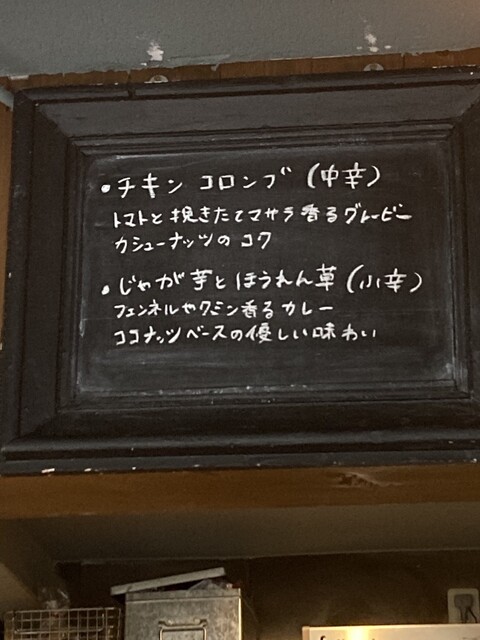 ・チキン コロンブ (中辛)
トマトと挽きたてマサラ香るグレービー
カシューナッツのコク
・じゃが芋とほうれん草 (小辛)
フェンネルやクミン香るカレー
ココナッツベースの優しい味わい